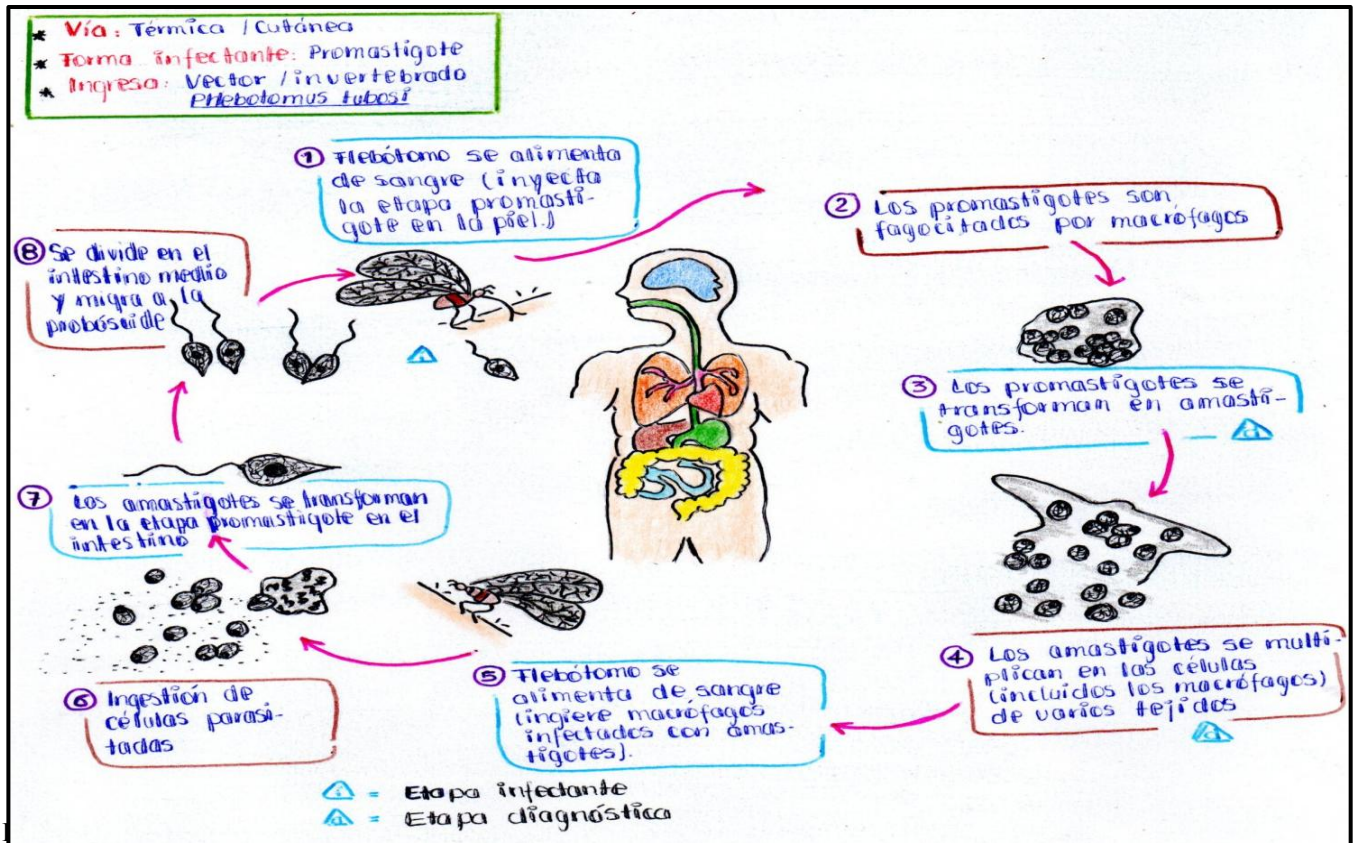 * Vía: Térmica / Cutánea
* Forma infectante: Promastigote
* Ingresa: Vector / invertebrado
Phlebotomus tubosi
① Flebótomo se alimenta
de sangre (inyecta
la etapa promasti-
gote en la piel.)
② Los promastigotes son
fagocitados por macrófagos
③ Los promastigotes se
transforman en amasti-
gotes.
d
④ Los amastigotes se multi-
plican en las células
(incluidos los macrófagos)
de varios tejidos
d
⑤ Flebótomo se
alimenta de sangre
(ingiere macrófagos
infectados con amas-
tigotes).
⑥ Ingestión de
células parasi-
tadas
⑦ Los amastigotes se transforman
en la etapa promastigote en el
intestino
⑧ Se divide en el
intestino medio
y migra a la
probóscide
i
i = Etapa infectante
d = Etapa diagnóstica